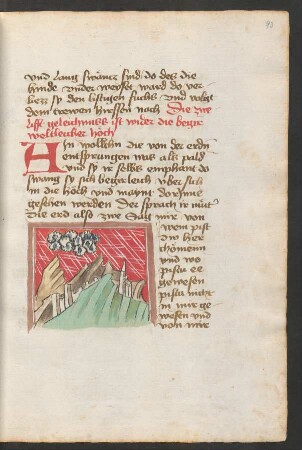 93
vnd lang swantz sind do des die
hinde vnder wepffet ward do ver
liesz sy den listigen fuchs vnd volgt
dem trewen hirssen nach Die zwe
lfft geleichnuss ist wider die begir
weltleicher höch
Ain wolkchen die von der erdn
entsprungen was als pald
vnd sy ir selbs emphant do
swang sy sich begirleich vber sich
in die höch vnd maynt dorinne
gesehen werden Der sprach ir muter
die erd also zwe Sag mir von
wem pist
dw hier
chömenn
vnd wo
pistu ee
gewesen
pistu nicht
in mir ge
wesen vnd
von mir